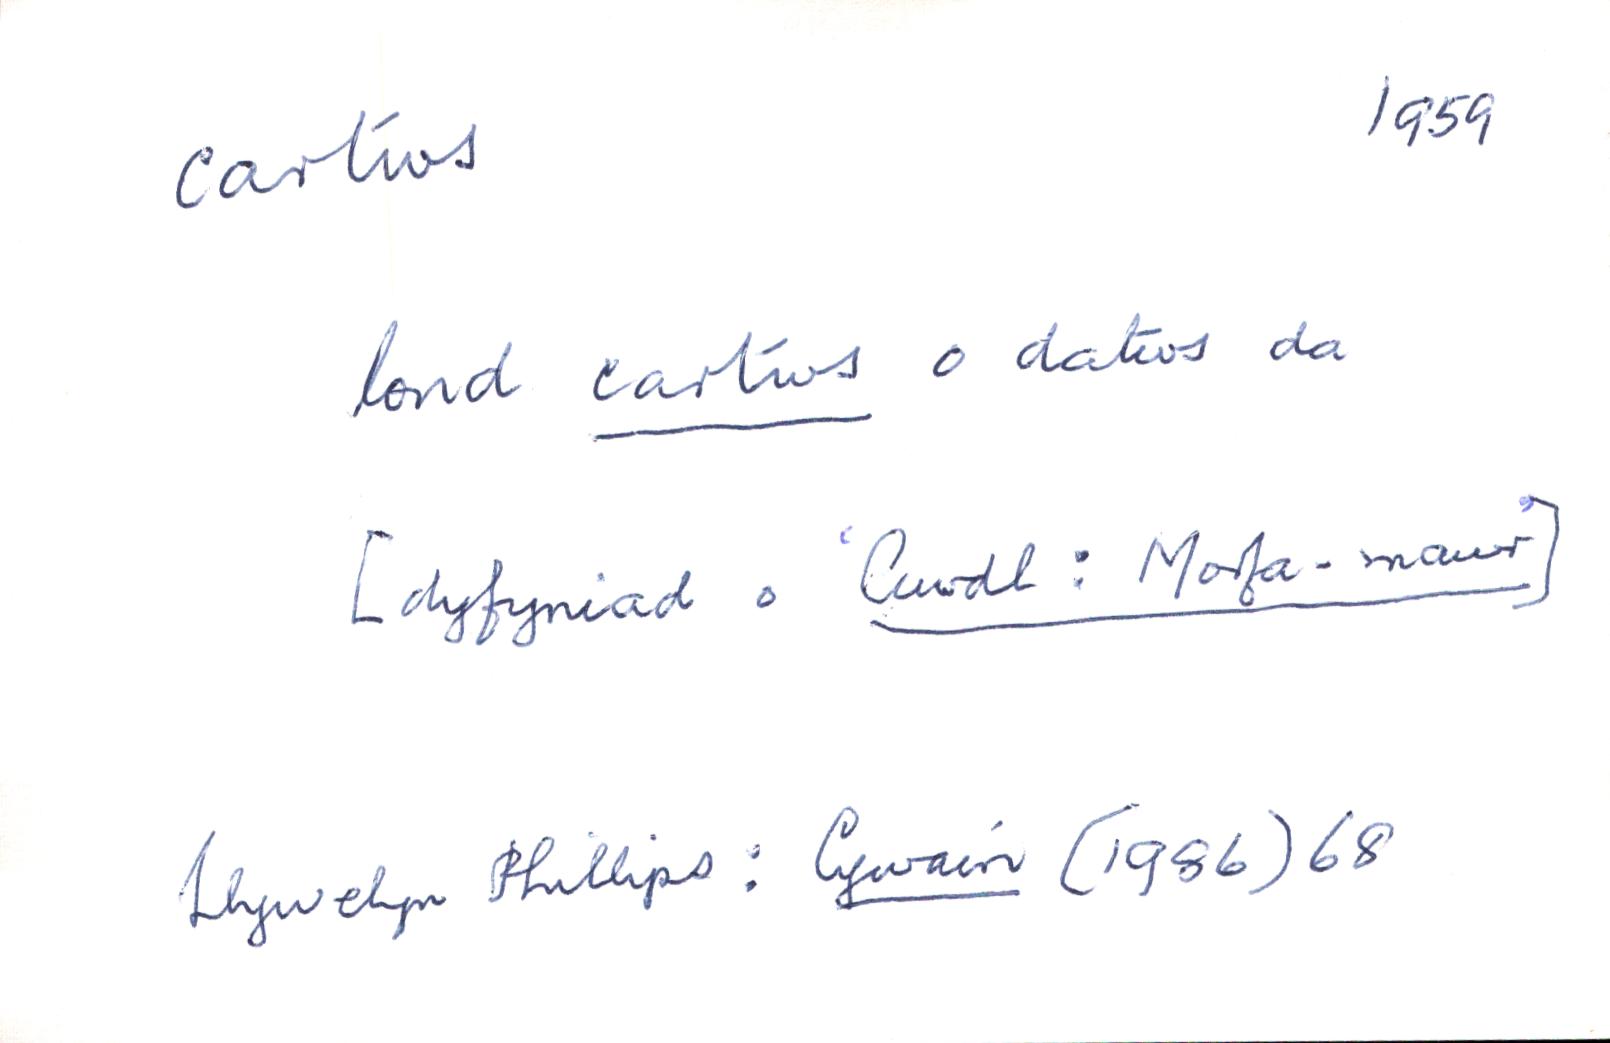 cartws 1959
lond cartws o datws da
[dyfyniad o 'Awdl : Morfa-mawr']
Llywelyn Phillips : Cywain (1986) 68